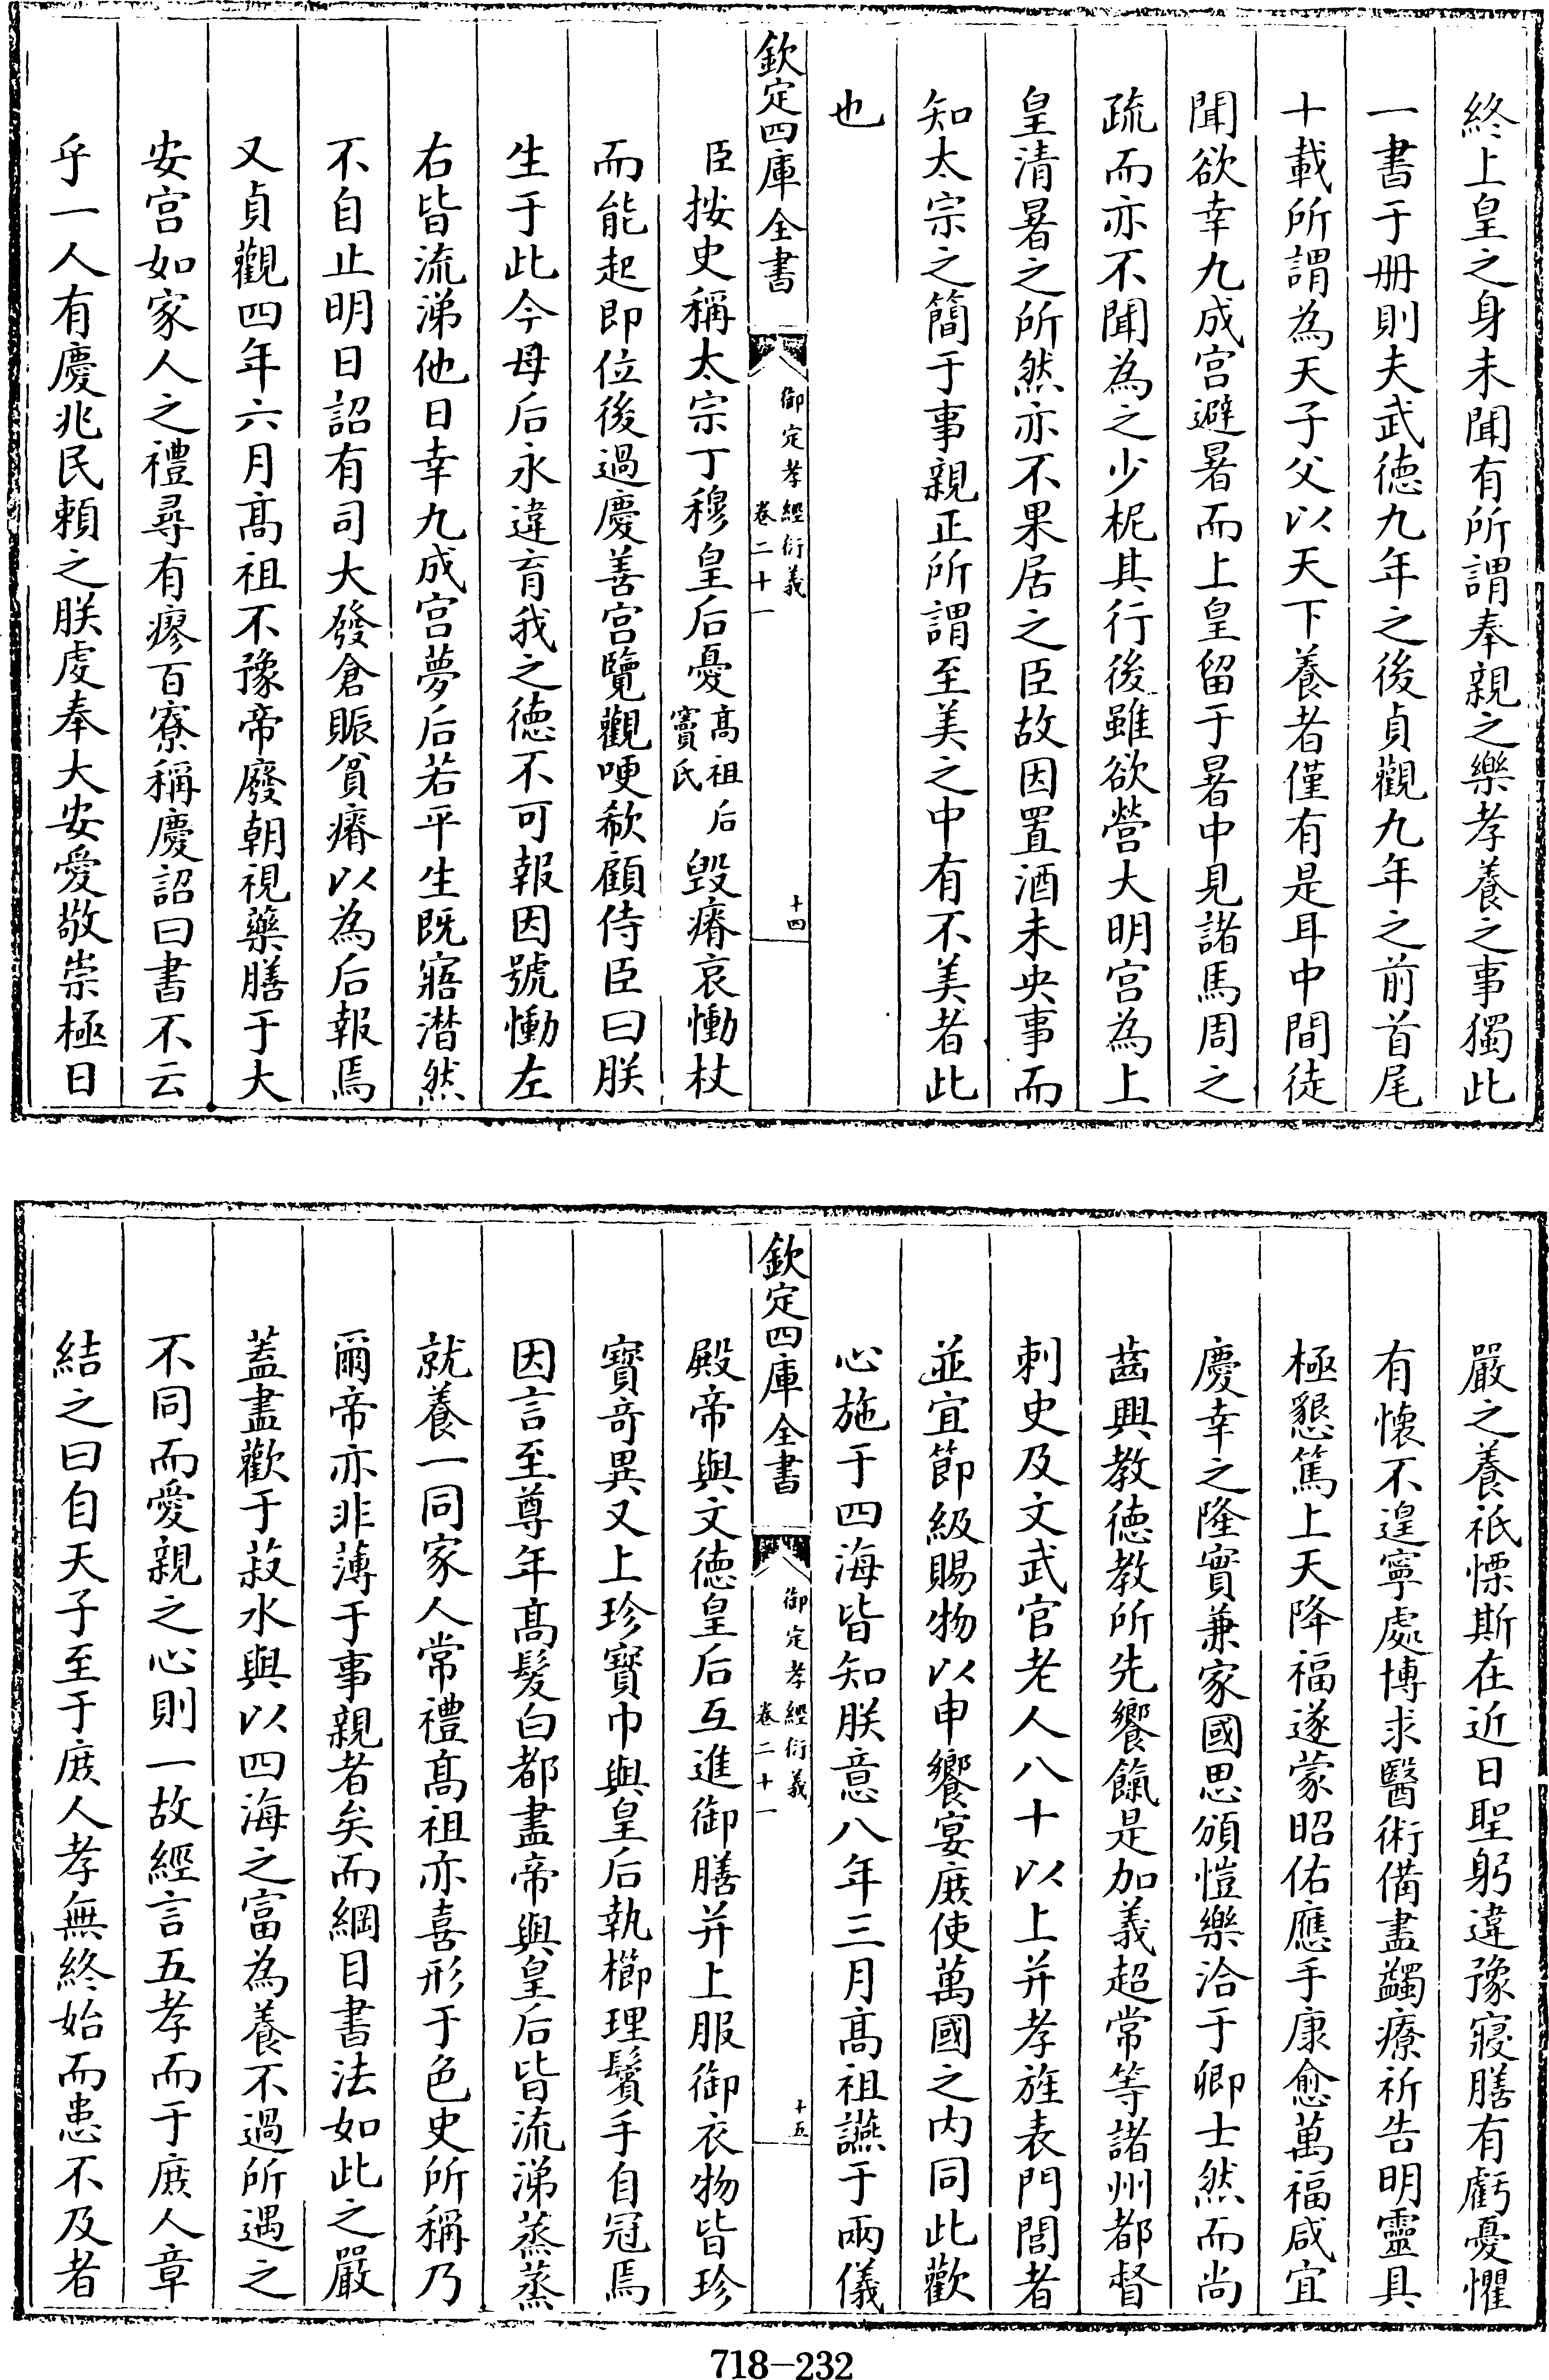 終上皇之身未聞有所謂奉親之樂孝養之事獨此
一書于册則夫武徳九年之後貞觀九年之前首尾
十載所謂為天子父以天下養者僅有是耳中間徒
聞欲幸九成宫避暑而上皇留于暑中見諸馬周之
疏而亦不聞為之少柅其行後雖欲營大明宫為上
皇清暑之所然亦不果居之臣故因置酒未央事而
知太宗之簡于事親正所謂至美之中有不美者此
也
欽定四庫全書
御定孝經衍義
卷二十一
十四
臣按史稱太宗丁穆皇后憂髙祖后竇氏毁瘠哀慟杖
而能起即位後過慶善宫覽觀哽欷顧侍臣曰朕
生于此今母后永違育我之徳不可報因號慟左
右皆流涕他日幸九成宫夢后若平生既寤潸然
不自止明日詔有司大發倉賑貧瘠以為后報焉
又貞觀四年六月髙祖不豫帝廢朝視藥膳于大
安宫如家人之禮尋有瘳百寮稱慶詔曰書不云
乎一人有慶兆民頼之朕䖍奉大安愛敬崇極日
嚴之養祇慄斯在近日聖躬違豫寢膳有虧憂懼
有懐不遑寧處博求醫術備盡蠲療祈告明靈具
極懇篤上天降福遂蒙昭佑應手康愈萬福咸宜
慶幸之隆實兼家國思頒愷樂洽于卿士然而尚
齒興教徳教所先饗餼是加義超常等諸州都督
刺史及文武官老人八十以上并孝旌表門閭者
並宜節級賜物以申饗宴庶使萬國之内同此歡
心施于四海皆知朕意八年三月髙祖讌于兩儀
欽定四庫全書
御定孝經衍義
卷二十一
十五
殿帝與文徳皇后互進御膳并上服御衣物皆珍
寳竒異又上珍寳巾與皇后執櫛理鬢手自冠焉
因言至尊年髙髪白都盡帝與皇后皆流涕蒸蒸
就養一同家人常禮髙祖亦喜形于色史所稱乃
爾帝亦非薄于事親者矣而綱目書法如此之嚴
葢盡歡于菽水與以四海之富為養不過所遇之
不同而愛親之心則一故經言五孝而于庶人章
結之曰自天子至于庶人孝無終始而患不及者
718-232